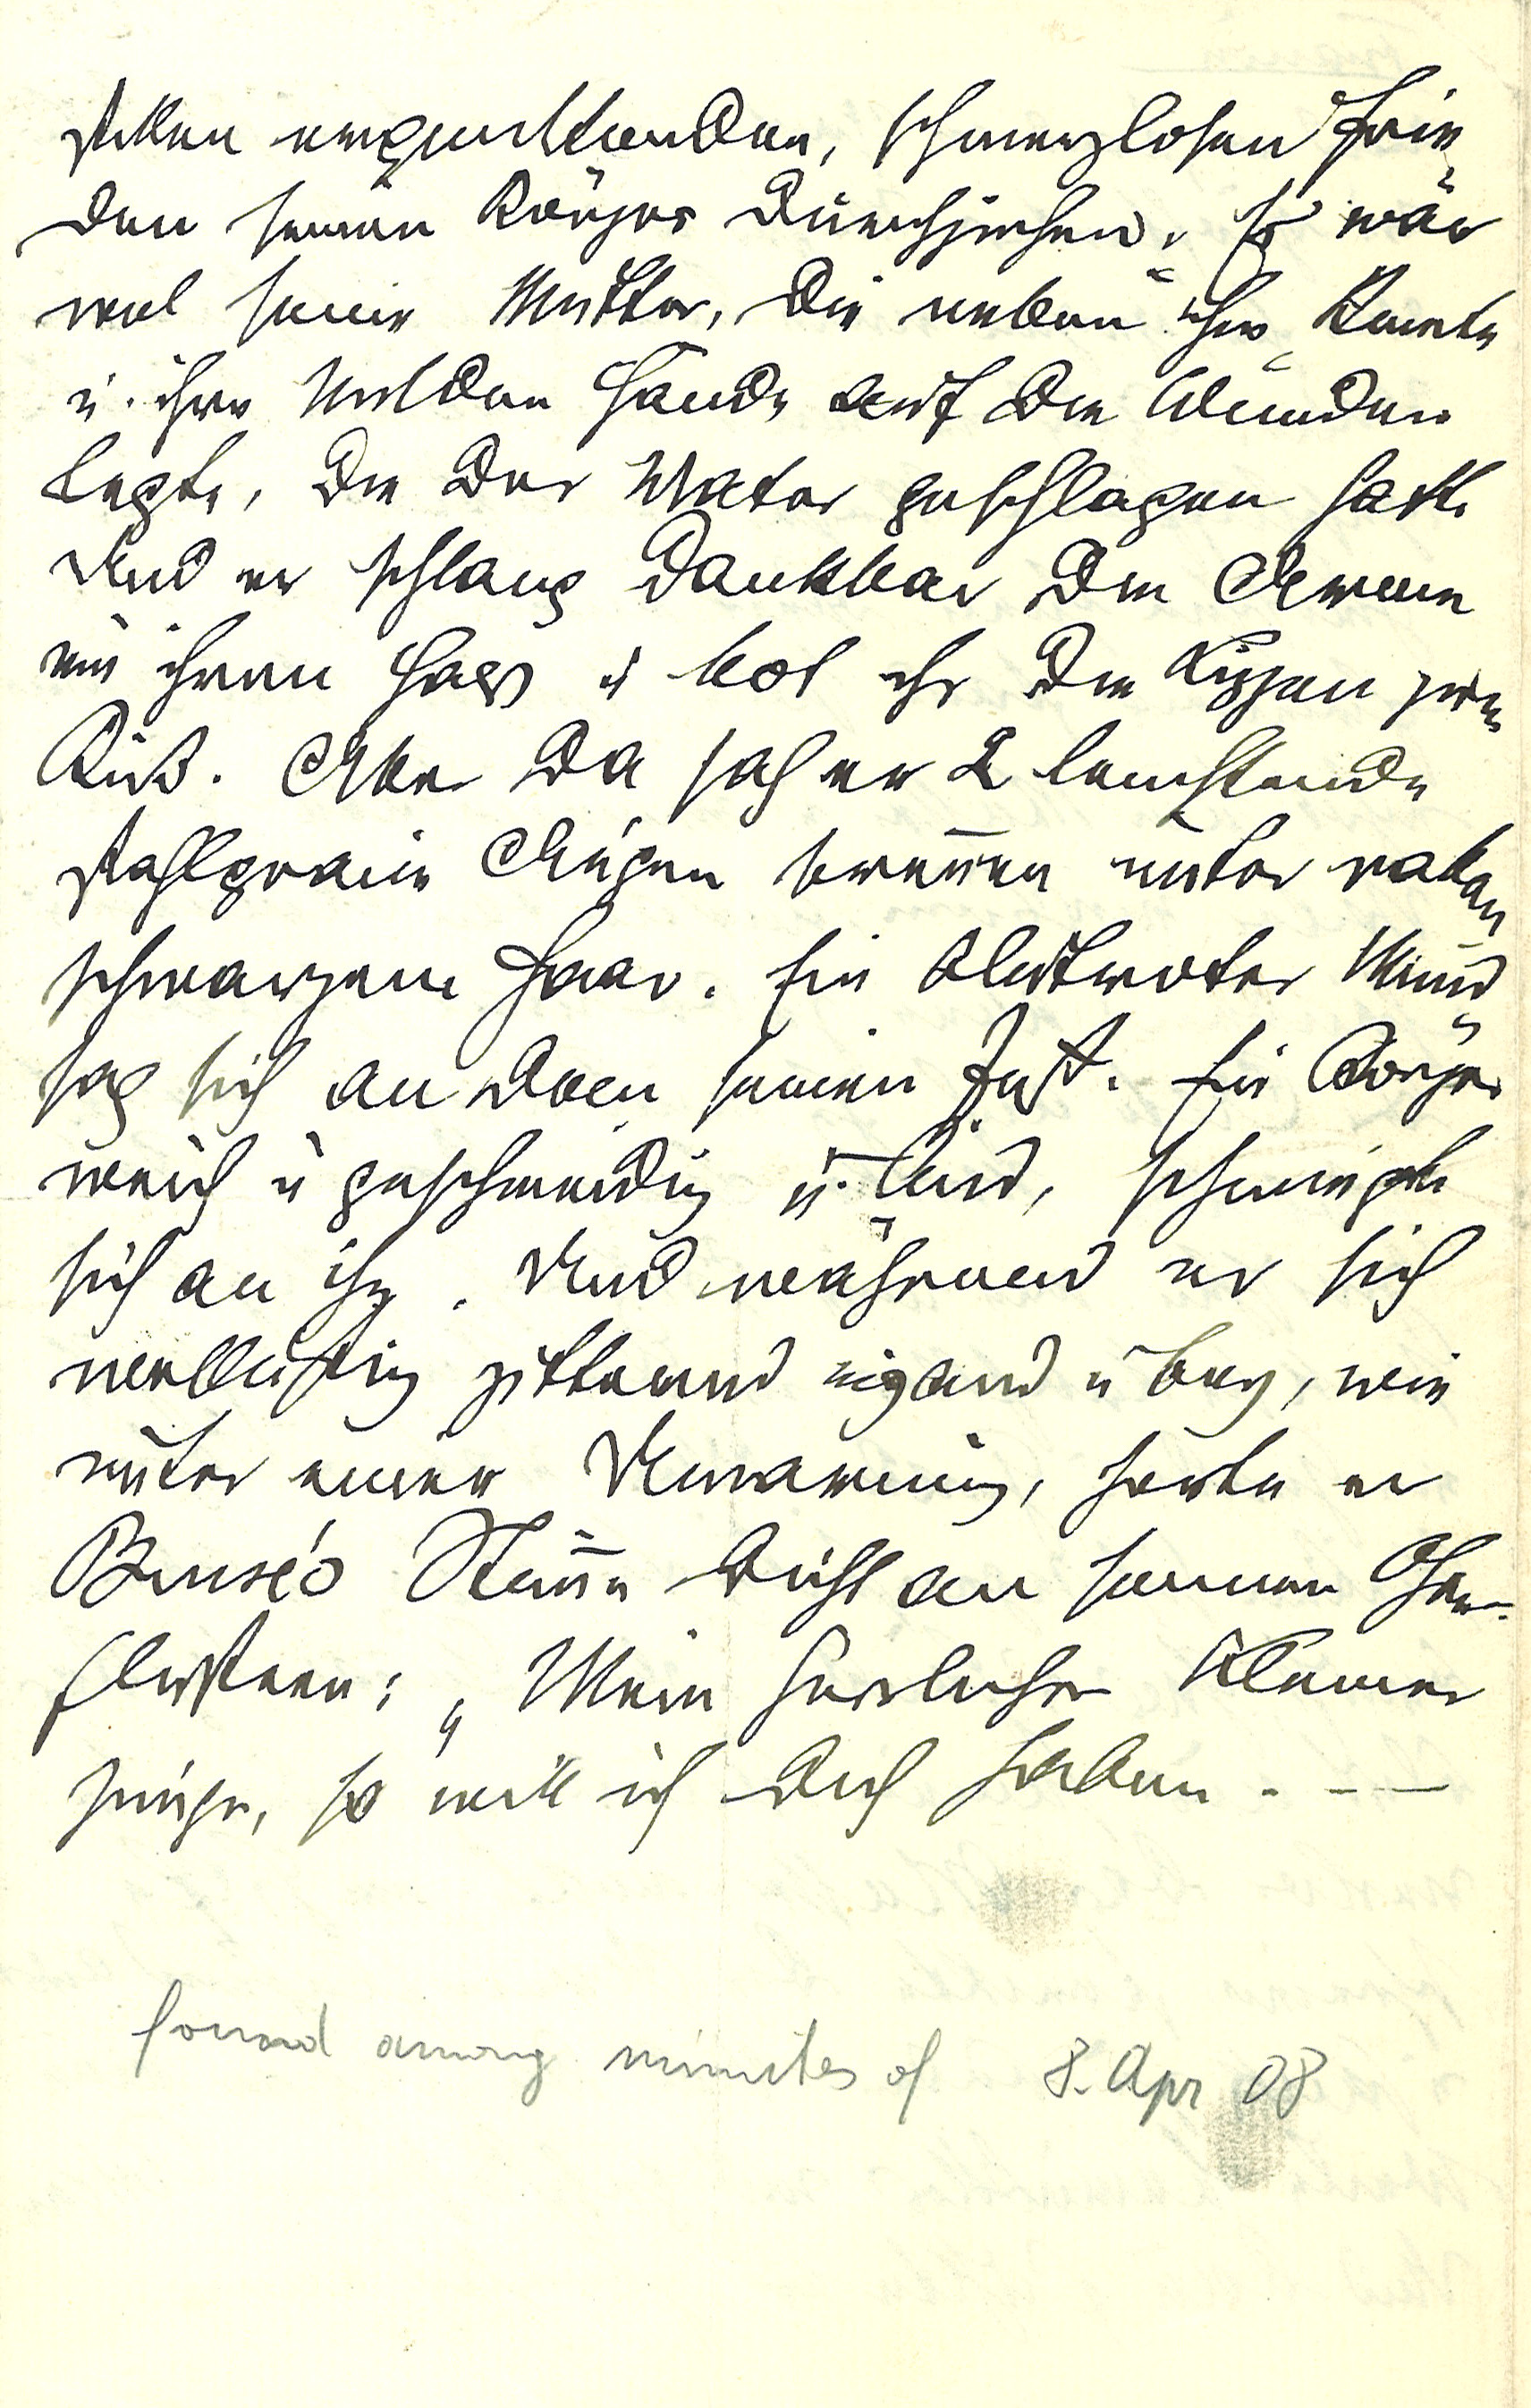 stillen erquickenden, schmerzlosen Frie-
den seinen Körper durchziehen. Es war
wol seine Mutter, die neben ihm kniete
u. ihre milden Hände auf die Wunden
legte, die der Vater geschlagen hatte
Und er schlang dankbar die Arme
um ihren Hals u bot ihr die Lippen zum
Kuß. Aber da sah er 2 leuchtende
stahlgraue Augen brennen unter raben
schwarzem Haar. Ein blutroter Mund
sog sich an dem seinen fest. Ein Körper
weich u geschmeidig u. , schmiegte
sich an ihn. Und während er sich
wollüstig zitternd u bog, wie
unter einer Umarmung, hörte er
Stimme dicht an seinem Ohre
flüstern: „Mein herrlicher kleiner
Junge, so will ich dich haben. – –
found among minutes of 8. Apr 08